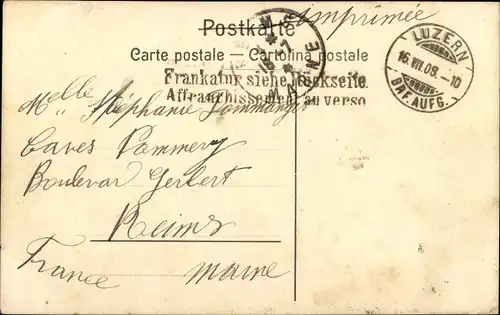 Postkarte
imprimée
Carte postale – Cartolina postale
Frankatur siehe Rückseite.
Affranchissement au verso
LUZERN
16.VII.08.-10
BRF. AUFG.
Melle Stéphanie
Caves Pommery
Boulevar Gerbert
Reims
France Marne